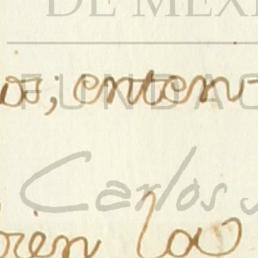 DE MÉXI
os; enton-
FUNDAC
Carlos S
bien las